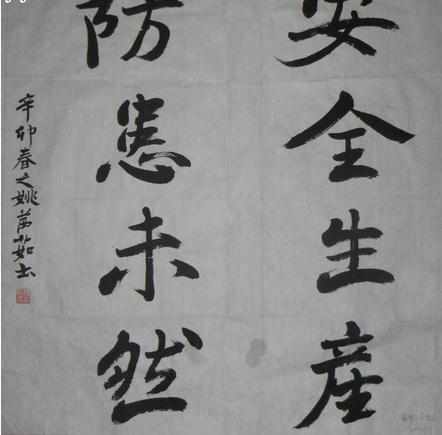 安全生產
防患未然
辛卯春之姚茹书